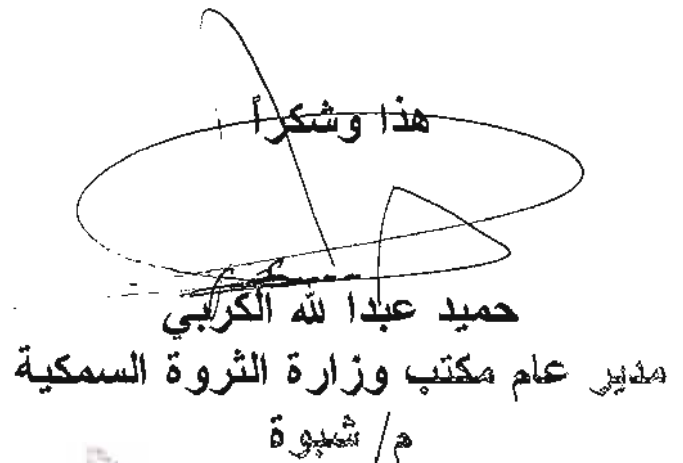 هذا وشكراً
حميد عبدا لله الكربي
مدير عام مكتب وزارة الثروة السمكية
م/ شبوة